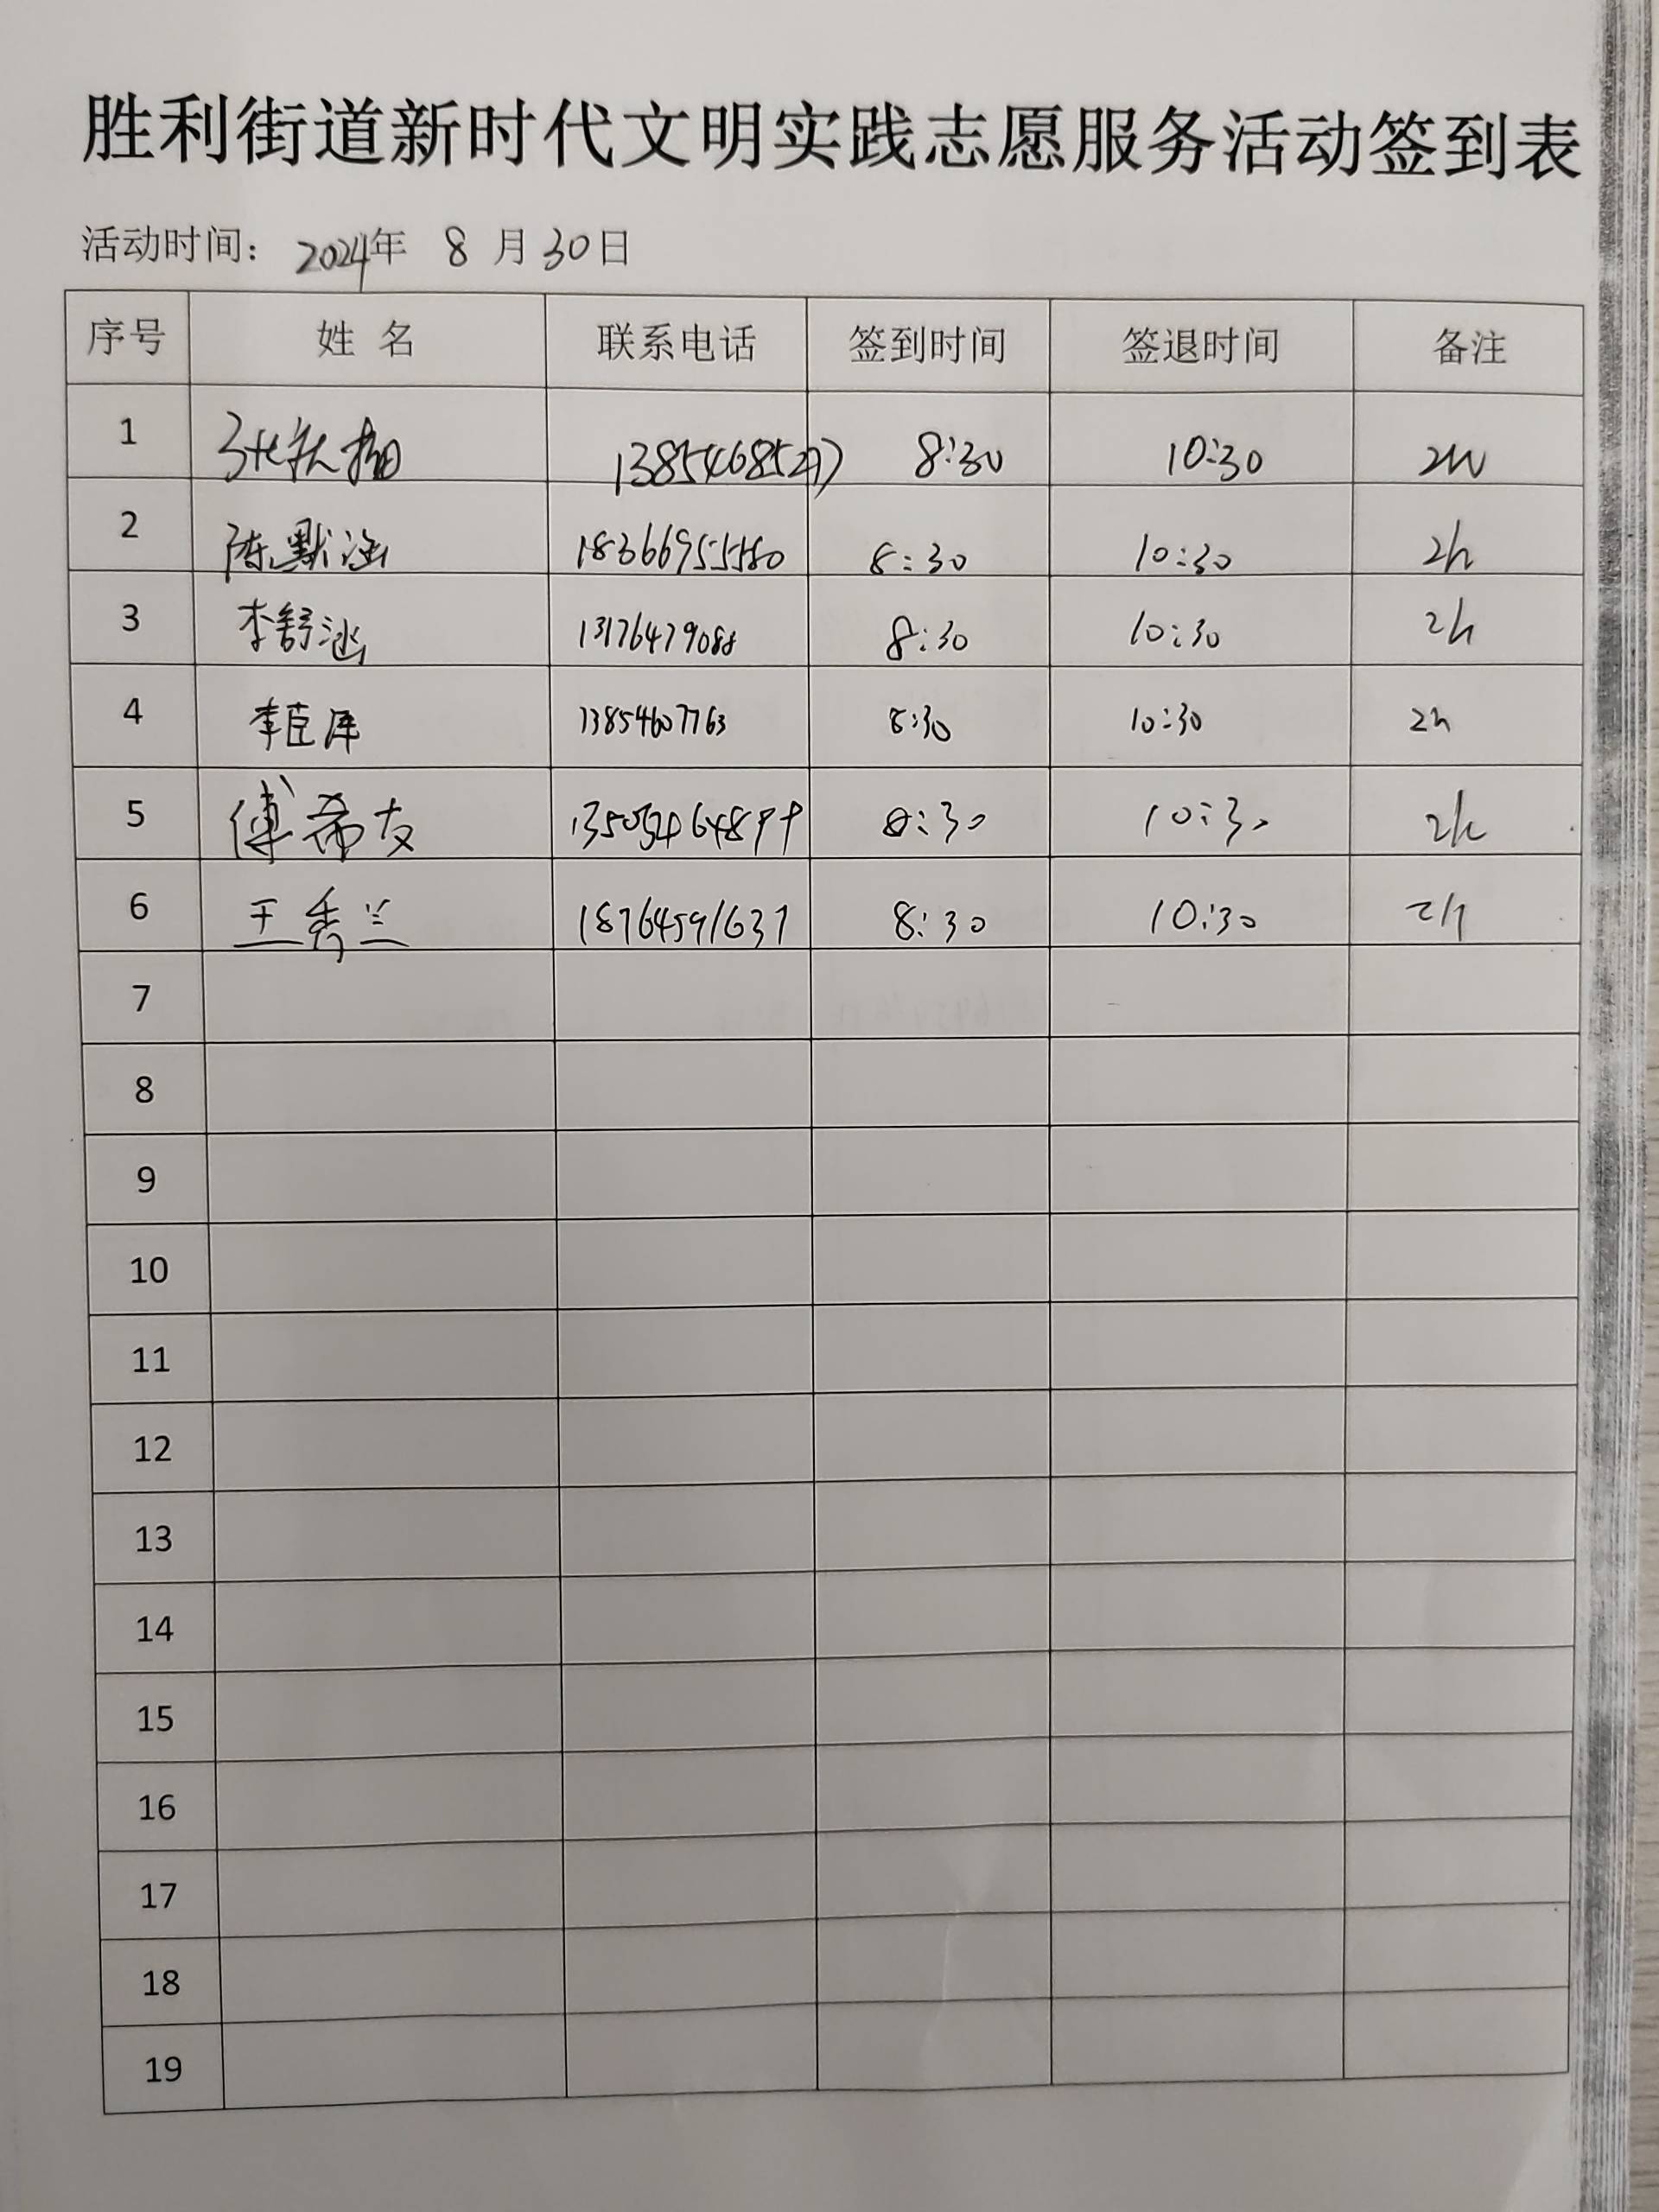 胜利街道新时代文明实践志愿服务活动签到表
活动时间： 2024年 8 月 30 日
序号 姓 名 联系电话 签到时间 签退时间 备注
1 8:30 10:30 2h
2 陈默涵 18366955580 8:30 10:30 2h
3 李舒涵 13176479088 8:30 10:30 2h
4 李臣 13854607763 8:30 10:30 2h
5 傅希友 8:30 10:30 2h
6 王秀兰 18764591637 8:30 10:30 2h
7
8
9
10
11
12
13
14
15
16
17
18
19